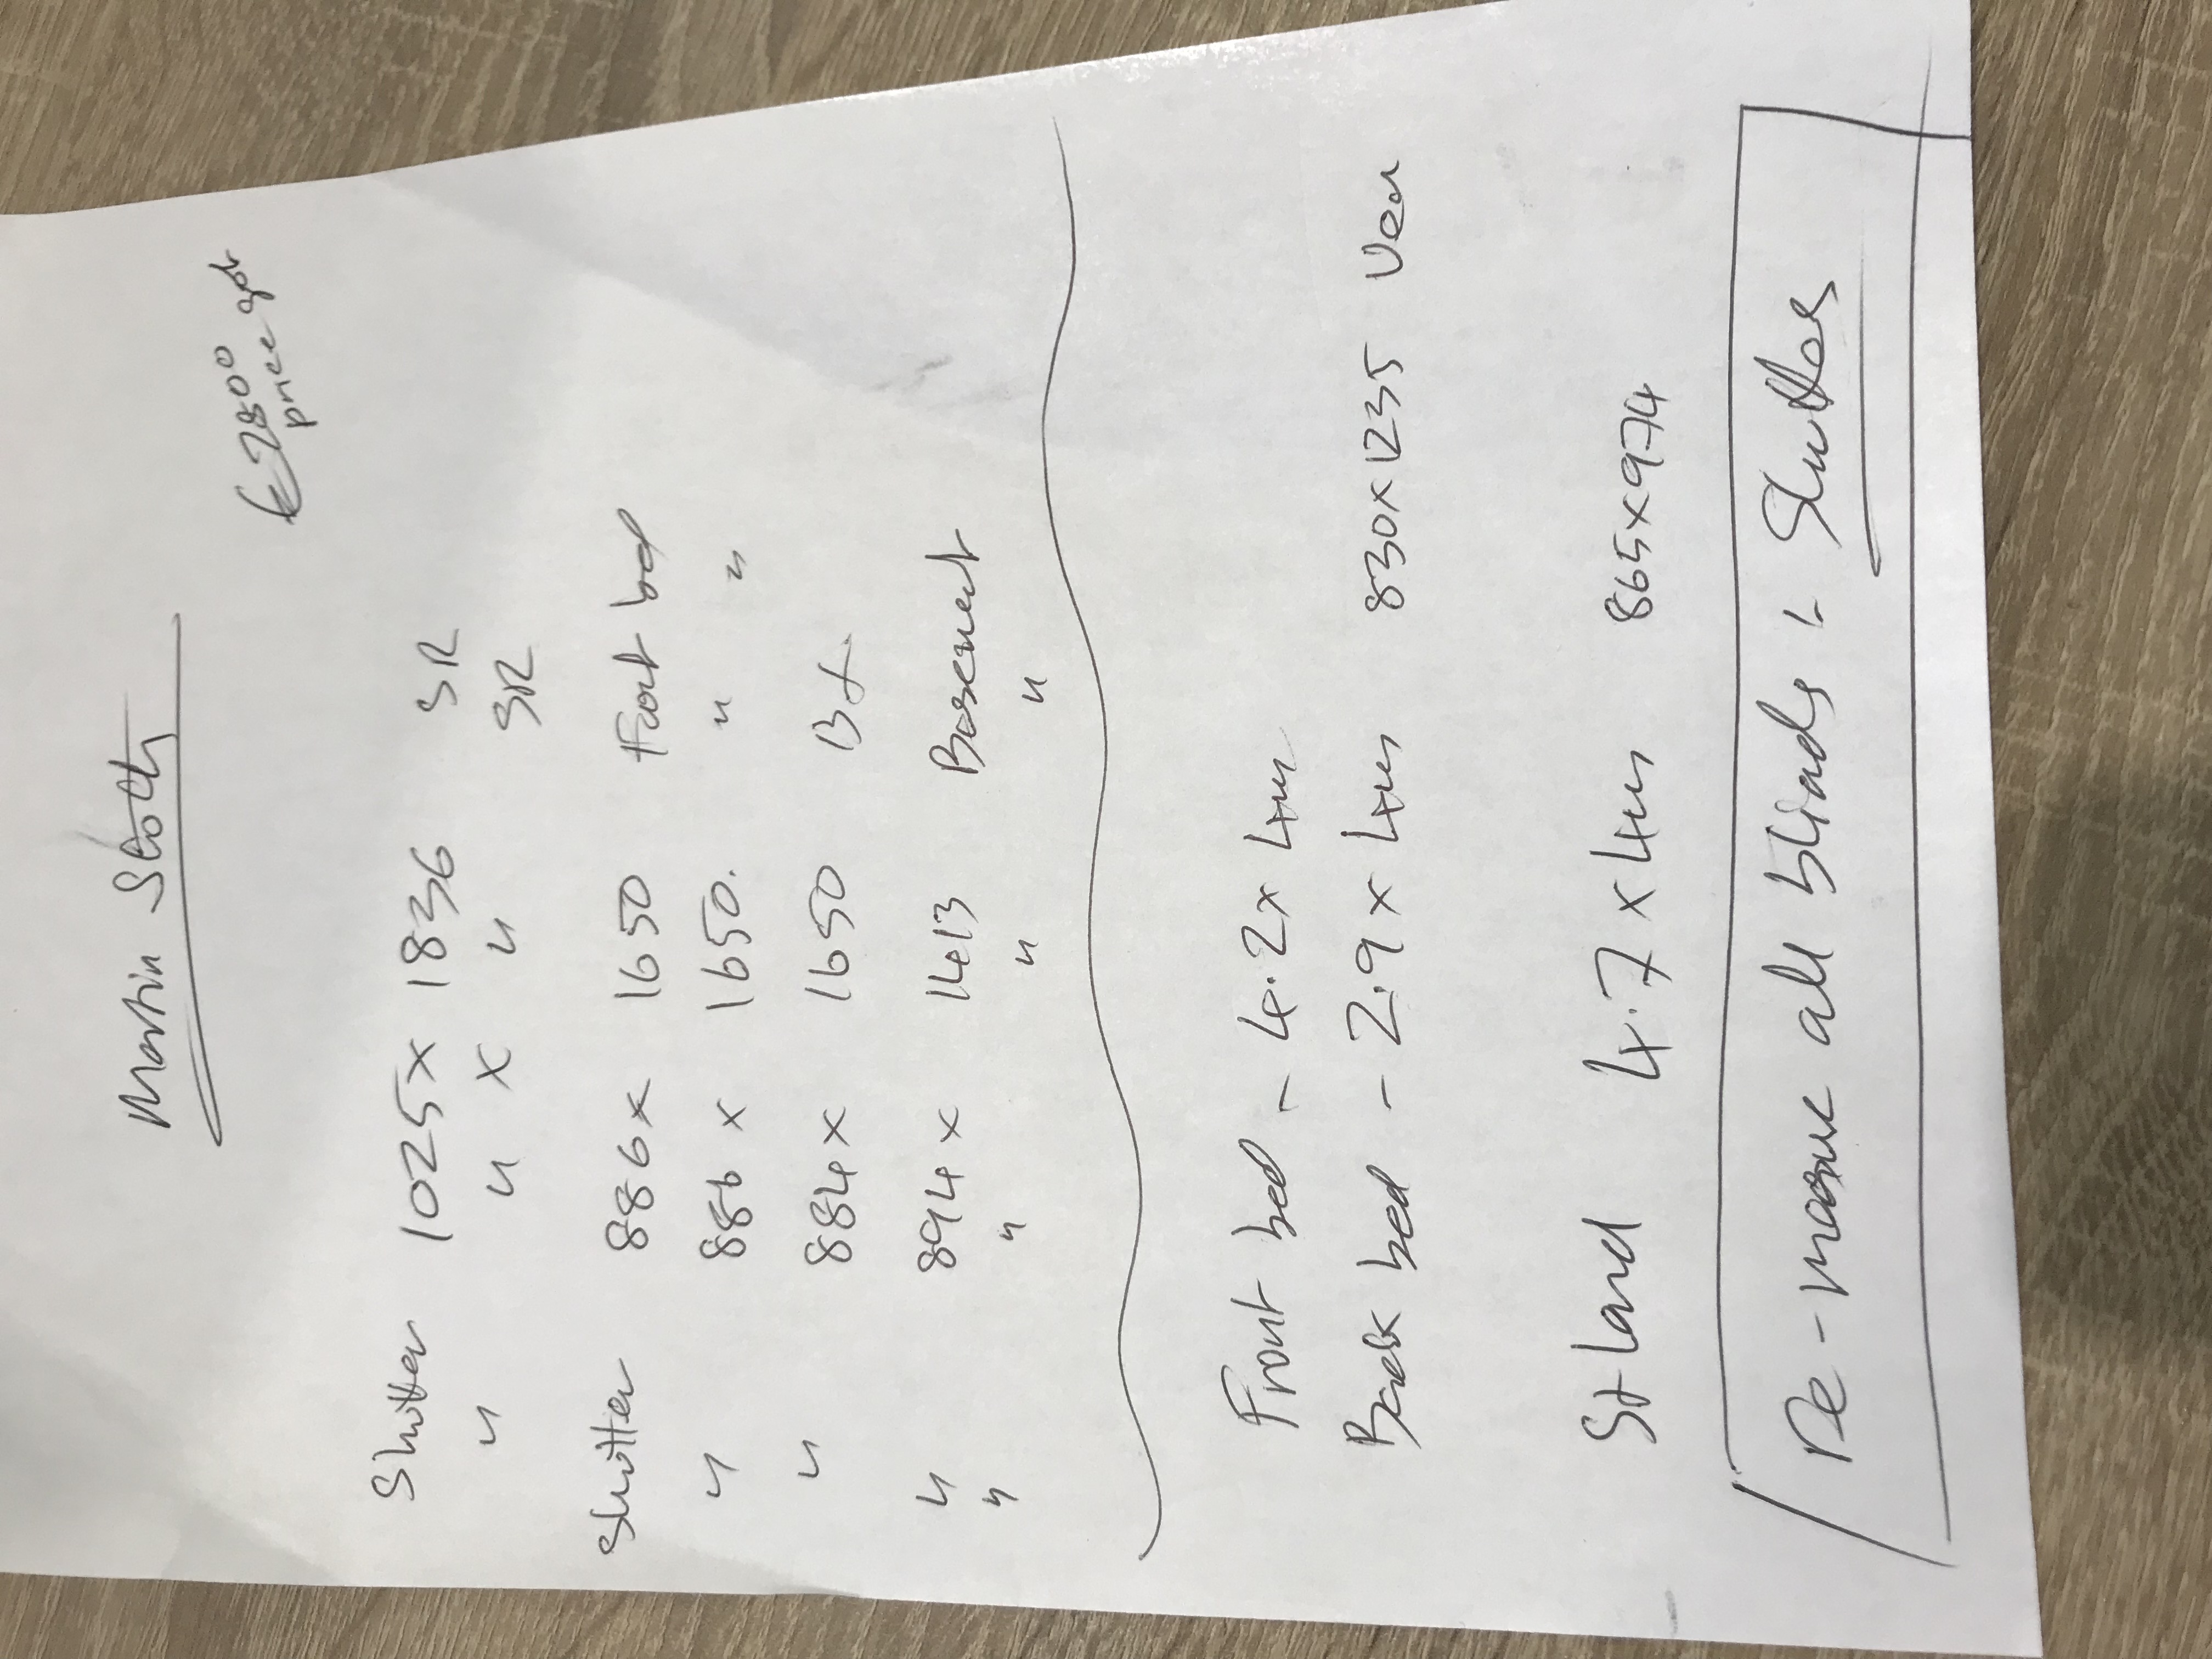 Martin Scott
£2800
price
Shutter 1025 x 1836 SR
" " x " SR
Shutter 886 x 1650 Front bed
" 886 x 1650. " "
" 884 x 1650
" 894 x 1413 Basement
" " " "
Front bed - 4.2 x 4m
Back bed - 2.9 x 4m 830 x 1235 Ven
St Land 4.7 x 4m 865 x 974
Re-measure all blinds & Shutters